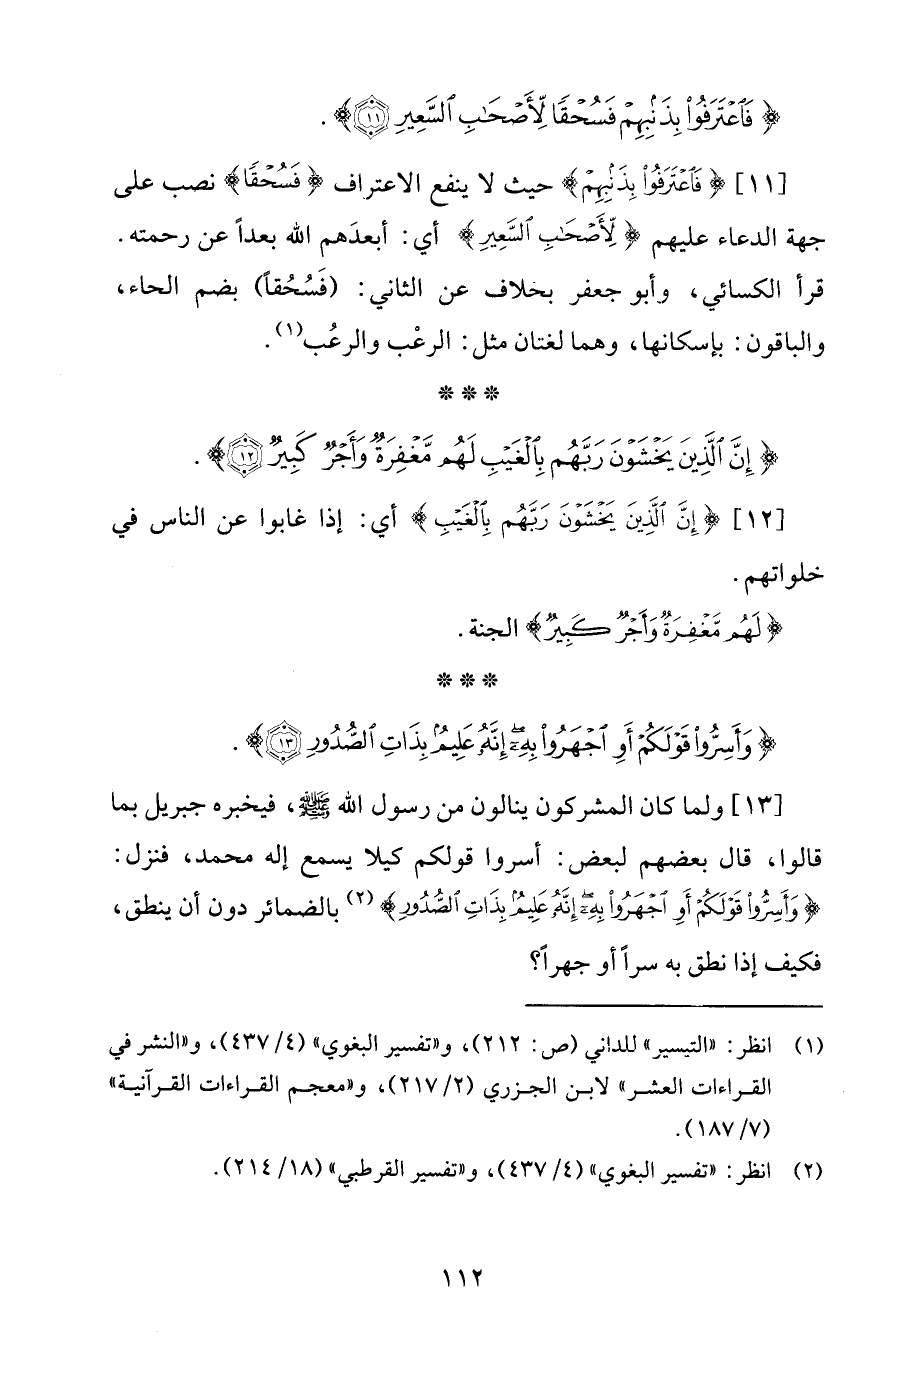 ﴿ فَٱعْتَرَفُوا۟ بِذَنۢبِهِمْ فَسُحْقًا لِّأَصْحَـٰبِ ٱلسَّعِيرِ ١١﴾ .
[١١] ﴿ فَٱعْتَرَفُوا۟ بِذَنۢبِهِمْ﴾ حيث لا ينفع الاعتراف ﴿ فَسُحْقًا﴾ نصب على
جهة الدعاء عليهم ﴿ لِّأَصْحَـٰبِ ٱلسَّعِيرِ ﴾ أي: أبعدَهم الله بعداً عن رحمته.
قرأ الكسائي، وأبو جعفر بخلاف عن الثاني: (فَسُحُقاً) بضم الحاء،
والباقون: بإسكانها، وهما لغتان مثل: الرعْب والرعُب(١).
* * *
﴿ إِنَّ ٱلَّذِينَ يَخْشَوْنَ رَبَّهُم بِٱلْغَيْبِ لَهُم مَّغْفِرَةٌ وَأَجْرٌ كَبِيرٌ ١٢﴾ .
[١٢] ﴿ إِنَّ ٱلَّذِينَ يَخْشَوْنَ رَبَّهُم بِٱلْغَيْبِ ﴾ أي: إذا غابوا عن الناس في
خلواتهم.
﴿ لَهُم مَّغْفِرَةٌ وَأَجْرٌ كَبِيرٌ﴾ الجنة.
* * *
﴿ وَأَسِرُّوا۟ قَوْلَكُمْ أَوِ ٱجْهَرُوا۟ بِهِۦٓ إِنَّهُۥ عَلِيمٌۢ بِذَاتِ ٱلصُّدُورِ ١٣﴾ .
[١٣] ولما كان المشركون ينالون من رسول الله ﷺ، فيخبره جبريل بما
قالوا، قال بعضهم لبعض: أسروا قولكم كيلا يسمع إله محمد، فنزل:
﴿ وَأَسِرُّوا۟ قَوْلَكُمْ أَوِ ٱجْهَرُوا۟ بِهِۦٓ إِنَّهُۥ عَلِيمٌۢ بِذَاتِ ٱلصُّدُورِ﴾(٢) بالضمائر دون أن ينطق،
فكيف إذا نطق به سراً أو جهراً؟
(١) انظر: «التيسير» للداني (ص: ٢١٢)، و«تفسير البغوي» (٤/ ٤٣٧)، و«النشر في
القراءات العشر» لابن الجزري (٢/ ٢١٧)، و«معجم القراءات القرآنية»
(٧/ ١٨٧).
(٢) انظر: «تفسير البغوي» (٤/ ٤٣٧)، و«تفسير القرطبي» (١٨/ ٢١٤).
١١٢